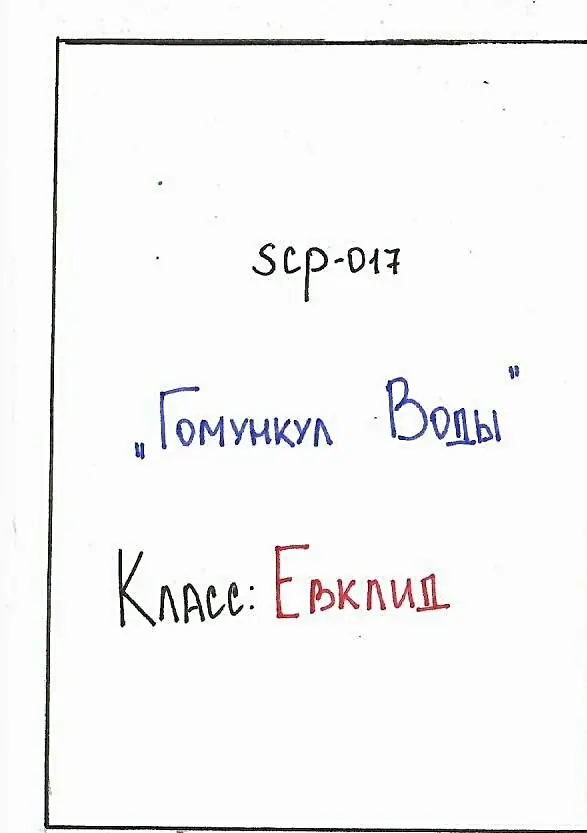 SCP-017
„Гомункул Воды"
Класс: Евклид